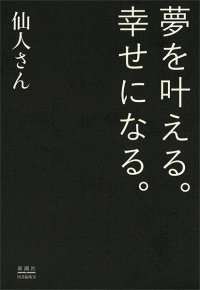 夢を叶える。
幸せになる。
仙人さん
新潮社